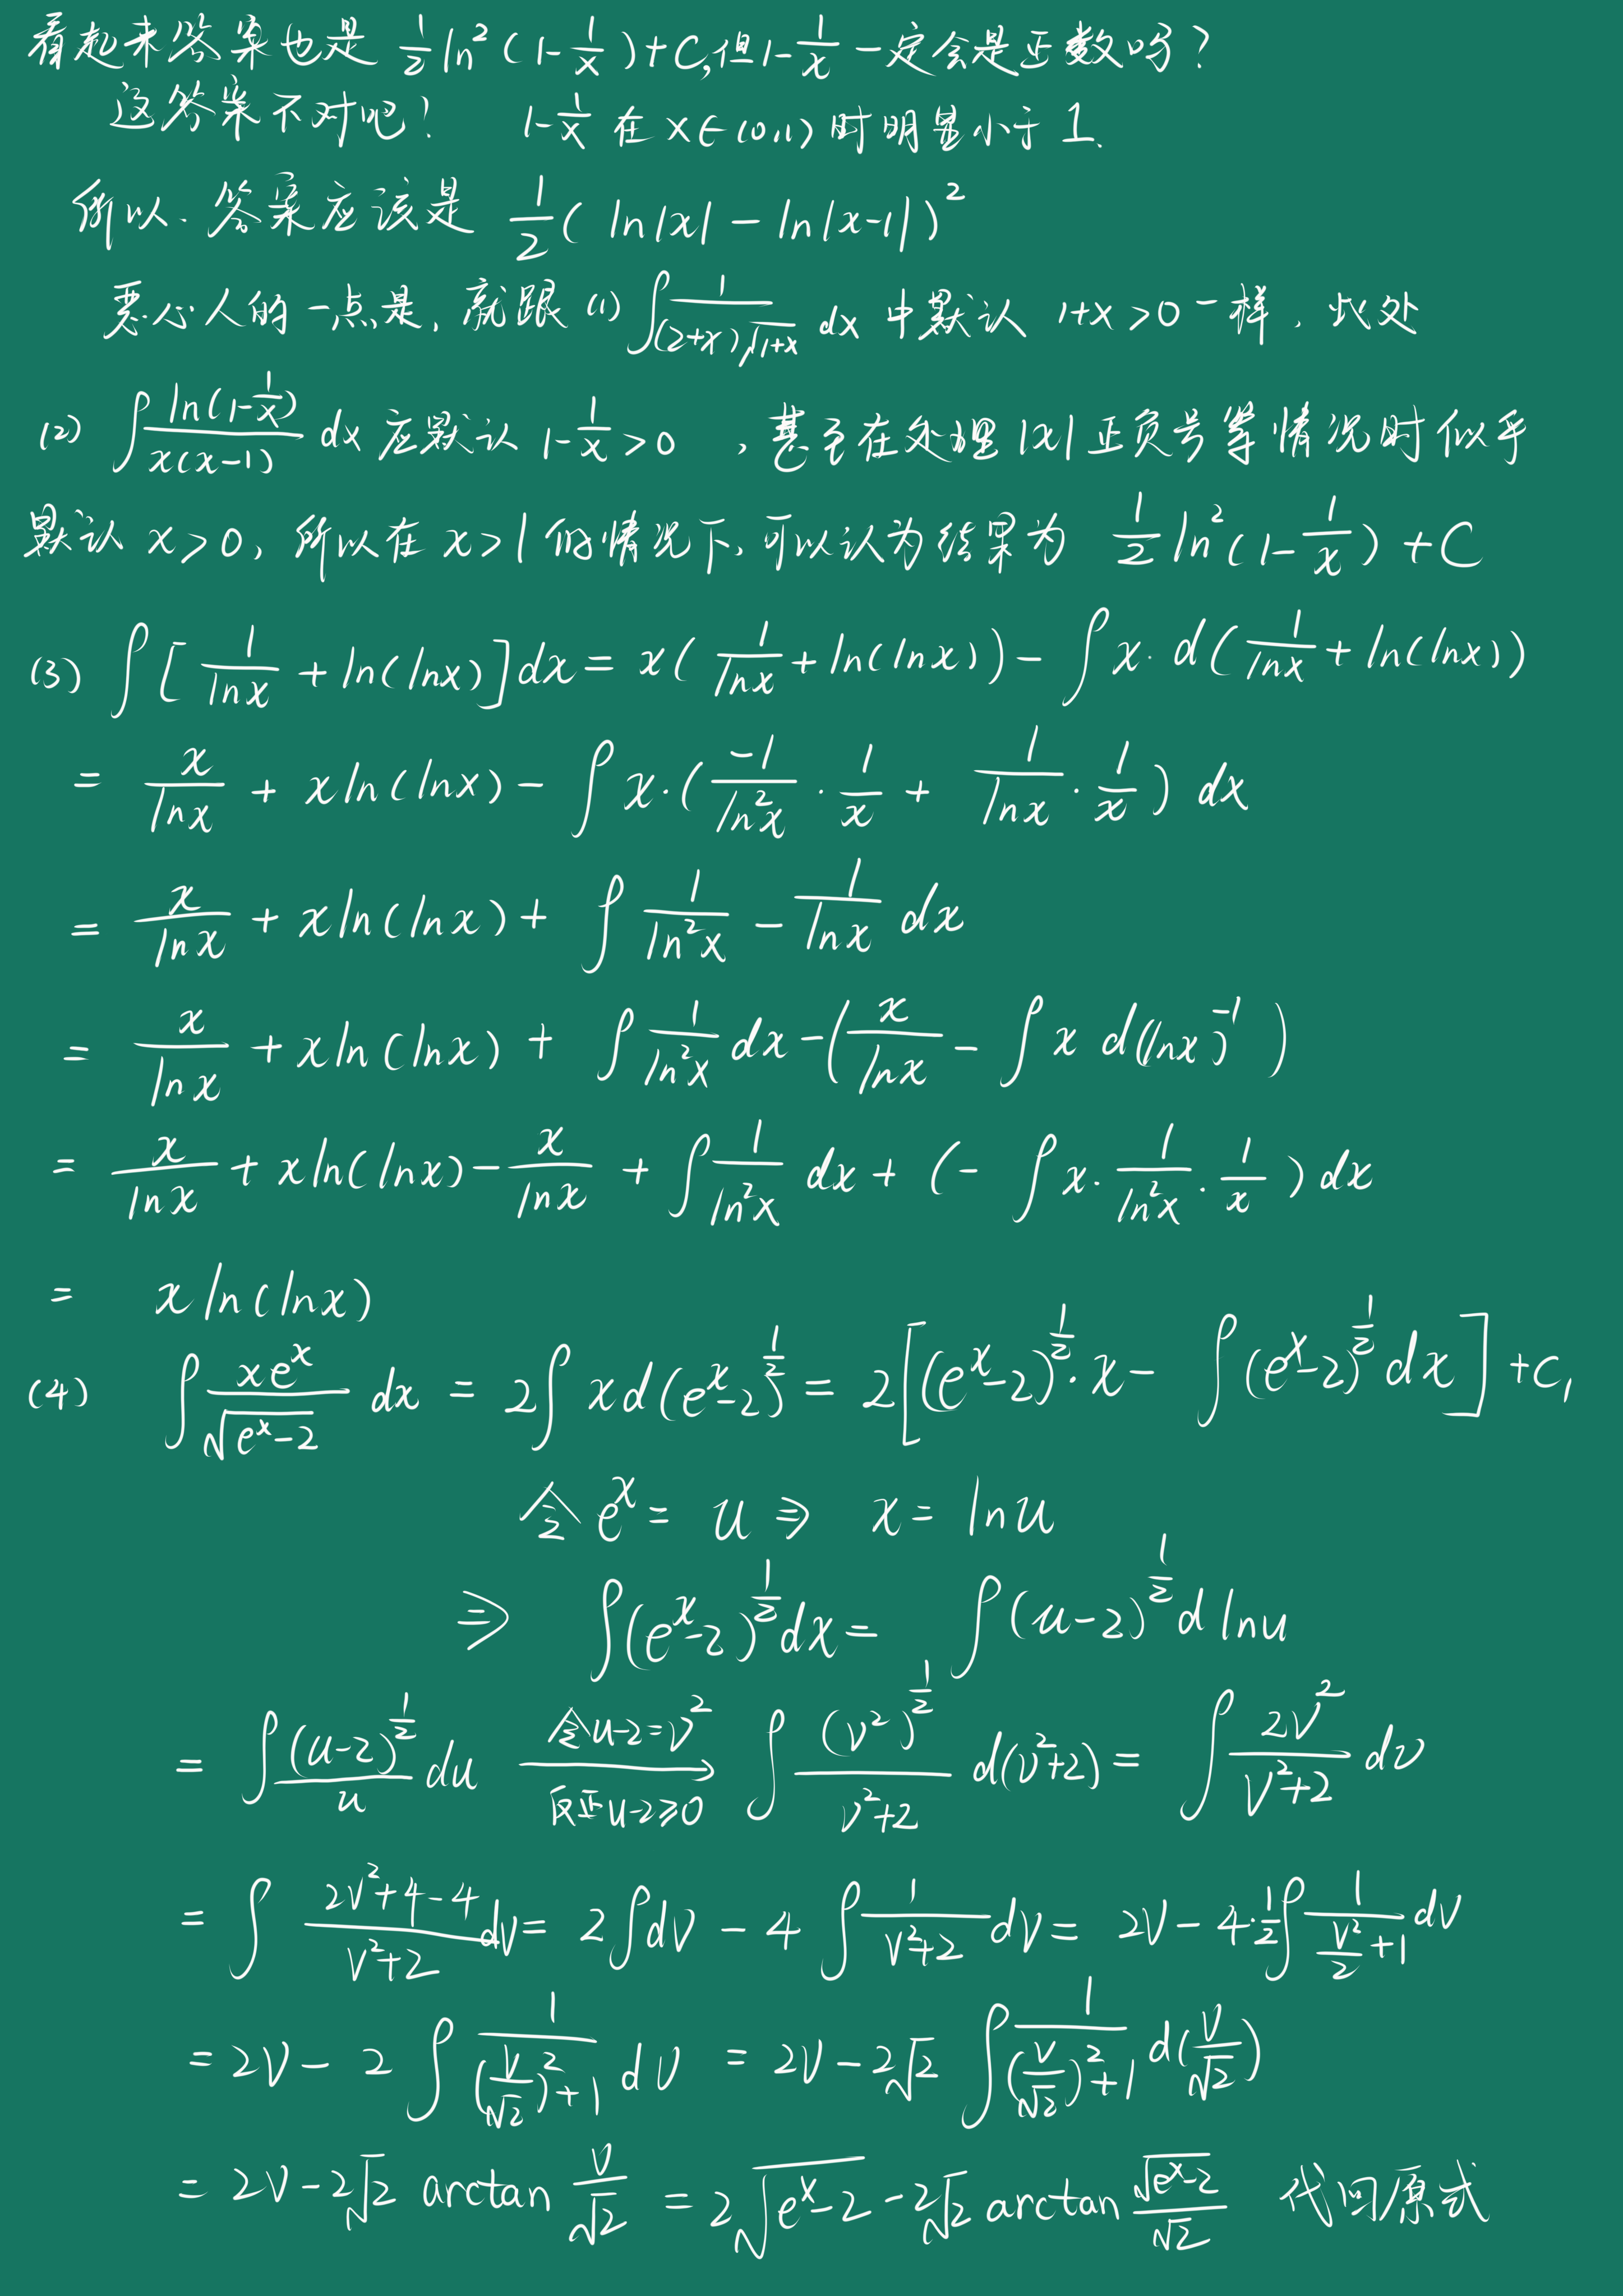 看起来答案也是 $\frac{1}{2}\ln^2(1-\frac{1}{x})+C$,但$1-\frac{1}{x}$一定会是正数吗?
这答案不对吧! $1-\frac{1}{x}$ 在 $x\in(0,1)$ 时明显小于 1.
所以. 答案应该是 $\frac{1}{2}(\ln|x|-\ln|x-1|)^2$
恶心人的一点是, 就跟 (1) $\int\frac{1}{(2+x)\sqrt{1+x}}dx$ 中默认 $1+x>0$ 一样, 此处
(2) $\int\frac{\ln(1-\frac{1}{x})}{x(x-1)}dx$ 应默认 $1-\frac{1}{x}>0$ , 甚至在处理 $|x|$ 正负号等情况时似乎
默认 $x>0$, 所以在 $x>1$ 的情况下, 可以认为结果为 $\frac{1}{2}\ln^2(1-\frac{1}{x})+C$
(3) $\int[\frac{1}{\ln x}+\ln(\ln x)]dx=x(\frac{1}{\ln x}+\ln(\ln x))-\int x\cdot d(\frac{1}{\ln x}+\ln(\ln x))$
$=\frac{x}{\ln x}+x\ln(\ln x)-\int x\cdot(\frac{-1}{\ln^2 x}\cdot\frac{1}{x}+\frac{1}{\ln x}\cdot\frac{1}{x})dx$
$=\frac{x}{\ln x}+x\ln(\ln x)+\int\frac{1}{\ln^2 x}-\frac{1}{\ln x}dx$
$=\frac{x}{\ln x}+x\ln(\ln x)+\int\frac{1}{\ln^2 x}dx-(\frac{x}{\ln x}-\int x\,d(\ln x)^{-1})$
$=\frac{x}{\ln x}+x\ln(\ln x)-\frac{x}{\ln x}+\int\frac{1}{\ln^2 x}dx+(-\int x\cdot\frac{1}{\ln^2 x}\cdot\frac{1}{x})dx$
$=x\ln(\ln x)$
(4) $\int\frac{xe^x}{\sqrt{e^x-2}}dx=2\int x\,d(e^x-2)^{\frac{1}{2}}=2[(e^x-2)^{\frac{1}{2}}\cdot x-\int(e^x-2)^{\frac{1}{2}}dx]+C_1$
令 $e^x=u\Rightarrow x=\ln u$
$\Rightarrow\int(e^x-2)^{\frac{1}{2}}dx=\int(u-2)^{\frac{1}{2}}d\ln u$
$=\int\frac{(u-2)^{\frac{1}{2}}}{u}du\xrightarrow[反正u-2\geq0]{令u-2=v^2}\int\frac{(v^2)^{\frac{1}{2}}}{v^2+2}d(v^2+2)=\int\frac{2v^2}{v^2+2}dv$
$=\int\frac{2v^2+4-4}{v^2+2}dv=2\int dv-4\int\frac{1}{v^2+2}dv=2v-4\cdot\frac{1}{2}\int\frac{1}{\frac{v^2}{2}+1}dv$
$=2v-2\int\frac{1}{(\frac{v}{\sqrt{2}})^2+1}dv=2v-2\sqrt{2}\int\frac{1}{(\frac{v}{\sqrt{2}})^2+1}d(\frac{v}{\sqrt{2}})$
$=2v-2\sqrt{2}\arctan\frac{v}{\sqrt{2}}=2\sqrt{e^x-2}-2\sqrt{2}\arctan\frac{\sqrt{e^x-2}}{\sqrt{2}}$ 代回原式